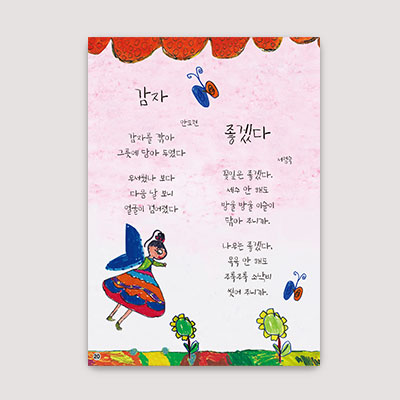 감자
감자를 깎아
그릇에 담아 두었다
무서웠나 보다
다음 날 보니
얼굴이 검어졌다
좋겠다
꽃잎은 좋겠다.
세수 안 해도
방울 방울 이슬이
닦아 주니까.
나무는 좋겠다.
목욕 안 해도
주룩주룩 소낙비
씻겨 주니까.
20